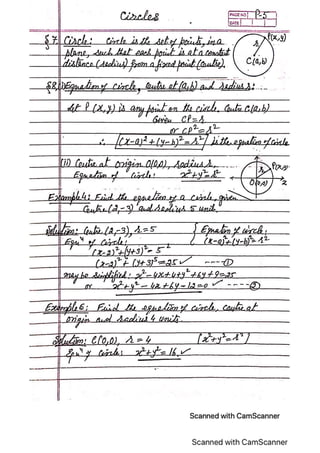 Circles
PAGE NO. P-5
DATE
§7. Circle: Circle is the set of points, in a
plane, such that each point is at a constant
distance (radius) from a fixed point (centre).
P(x,y)
r
C(a,b)
§8. (i) Equation of circle, centre at (a,b) and radius r:
Let P(x,y) is any point on the circle. Centre C(a,b)
Given CP=r
or CP²=r²
∴ (x-a)²+(y-b)²=r² is the equation of circle
(ii) Centre at origin O(0,0), radius r.
Equation of circle: x²+y²=r²
P(x,y)
r
O(0,0)
x
Example 4: Find the equation of a circle, given
Centre (2,-3) and radius 5 unit.
Solution: Centre (2,-3), r=5
Equation of circle:
(x-a)²+(y-b)²=r²
Equⁿ of circle:
(x-2)²+(y+3)²=5²
(x-2)²+(y+3)²=25 ----①
may be simplified: x²-4x+4+y²+6y+9=25
or x²+y²-4x+6y-12=0 ----②
Example 5: Find the equation of circle, centre at
origin and radius 4 units.
Solution: C(0,0), r=4 [x²+y²=r²]
Equⁿ of circle: x²+y²=16.
Scanned with CamScanner
Scanned with CamScanner